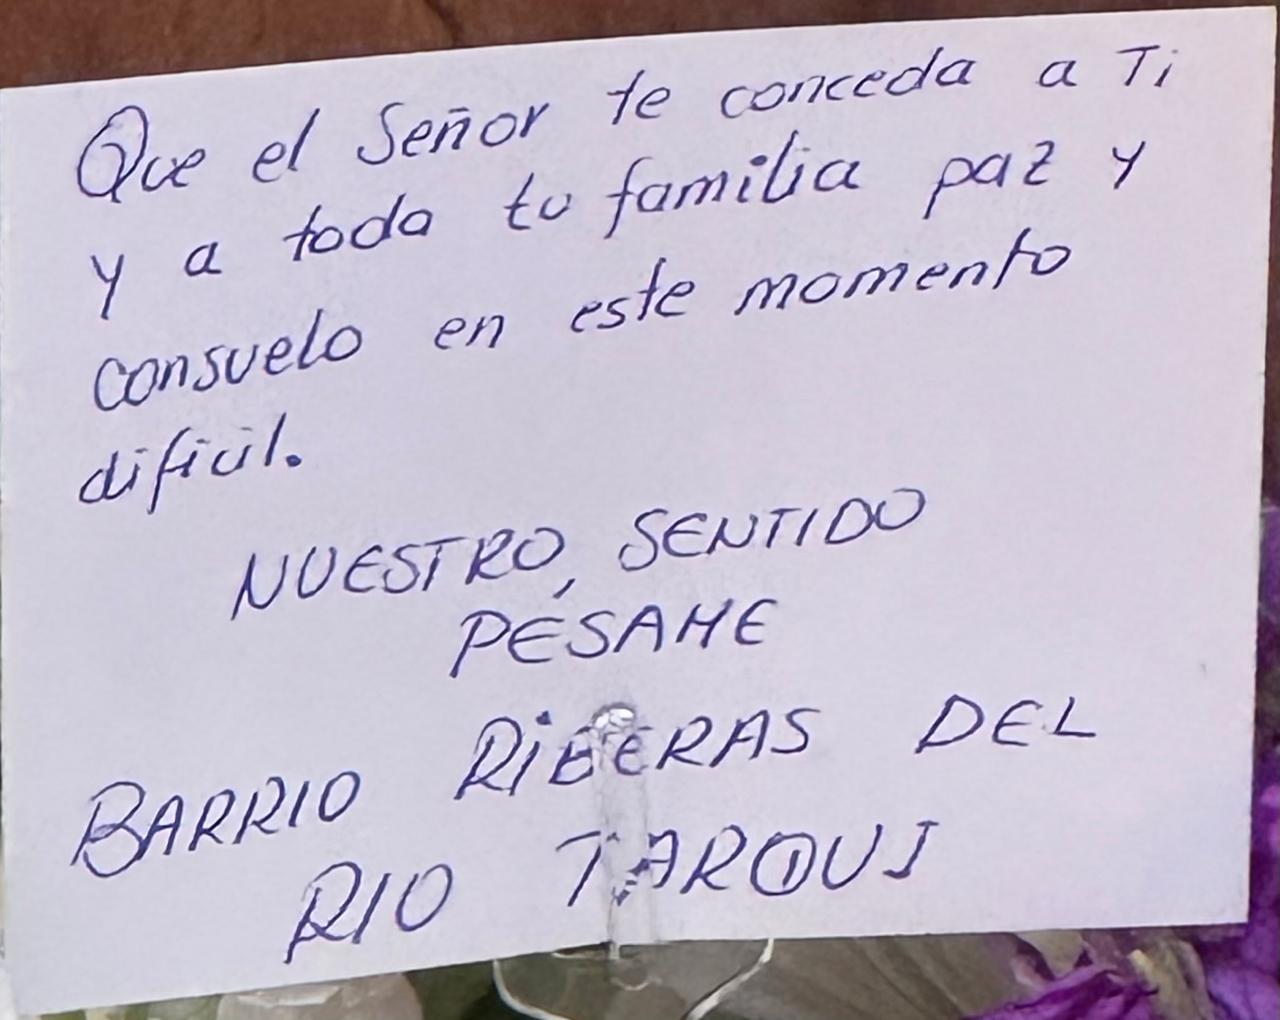 Que el Señor te conceda a Ti
y a toda tu familia paz y
consuelo en este momento
dificil.
NUESTRO, SENTIDO
PÉSAME
BARRIO RiBERAS DEL
RIO TARQUI